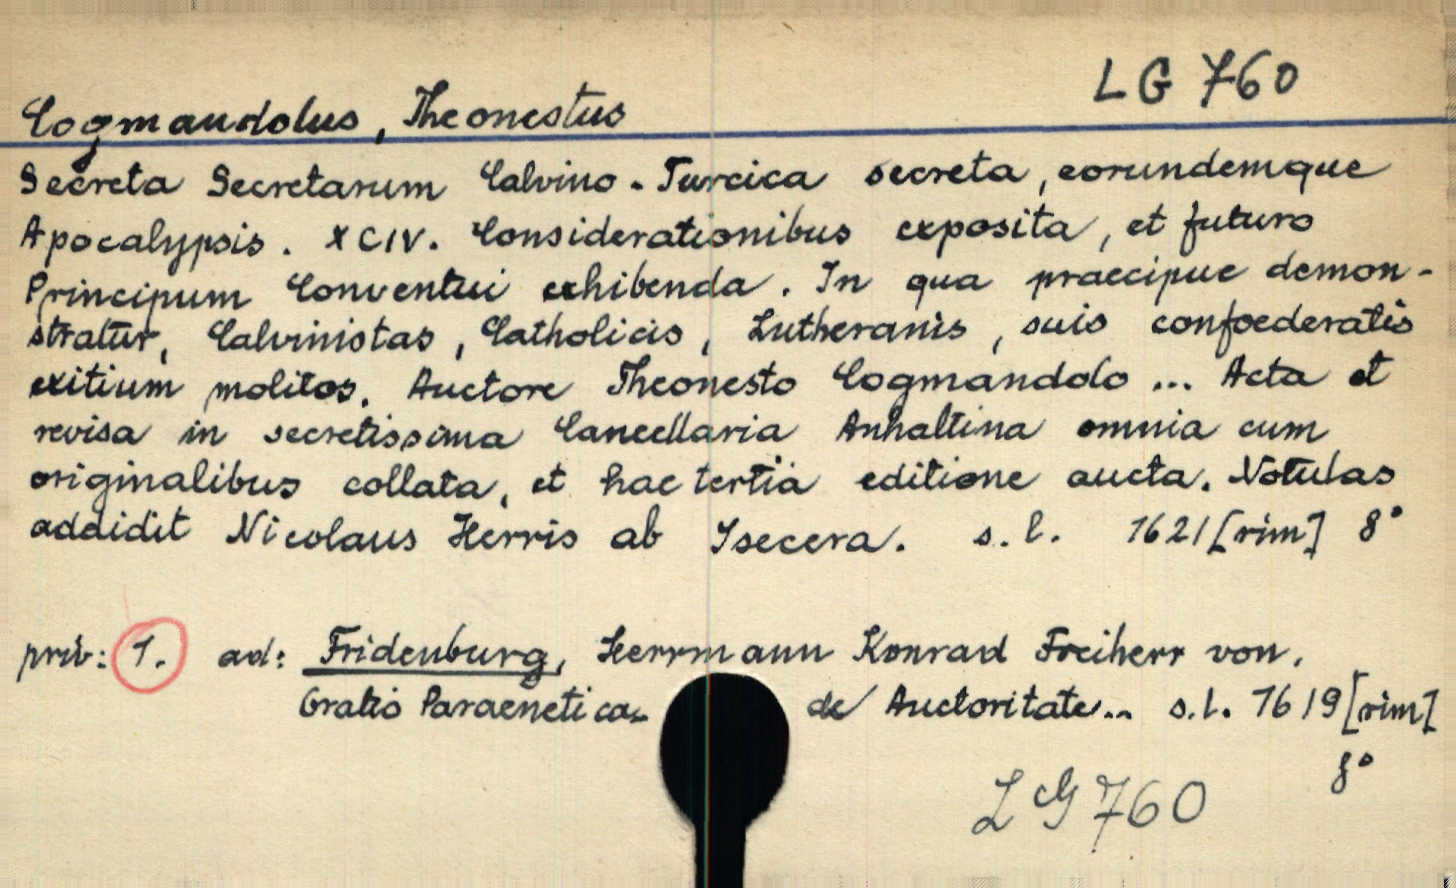 LG 760
Cogmandolus, Theonestus
Secreta Secretarum Calvino-Turcica secreta, eorundemque
Apocalypsis. XCIV. Considerationibus exposita, et futuro
Principum Conventui exhibenda. In qua praecipue demon-
stratur, Calvinistas, Catholicis, Lutheranis, suis confoederatis
exitium molitos. Auctore Theonesto Cogmandolo ... Acta et
revisa in secretissima Cancellaria Anhaltina omnia cum
originalibus collata, et hac tertia editione aucta. Notulas
addidit Nicolaus Herris ab Isecera. s.l. 1621[rim] 8°
priv: 1. ad: Fridenburg, Herrmann Konrad Freiherr von.
Oratio Paraenetica de Auctoritate... s.l. 1619[rim]
8°
LG 760